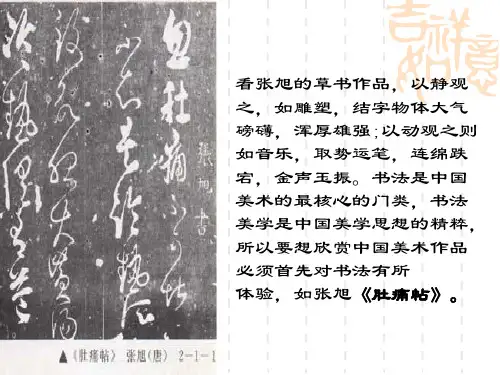 忽肚痛不可堪
張旭書
不知是冷热所
致欲服大黄汤
冷热俱有益
▲《肚痛帖》 张旭(唐) 2-1-1
吉祥如意
看张旭的草书作品，以静观
之，如雕塑，结字物体大气
磅礴，浑厚雄强;以动观之则
如音乐，取势运笔，连绵跌
宕，金声玉振。书法是中国
美术的最核心的门类，书法
美学是中国美学思想的精粹，
所以要想欣赏中国美术作品
必须首先对书法有所
体验，如张旭《肚痛帖》。